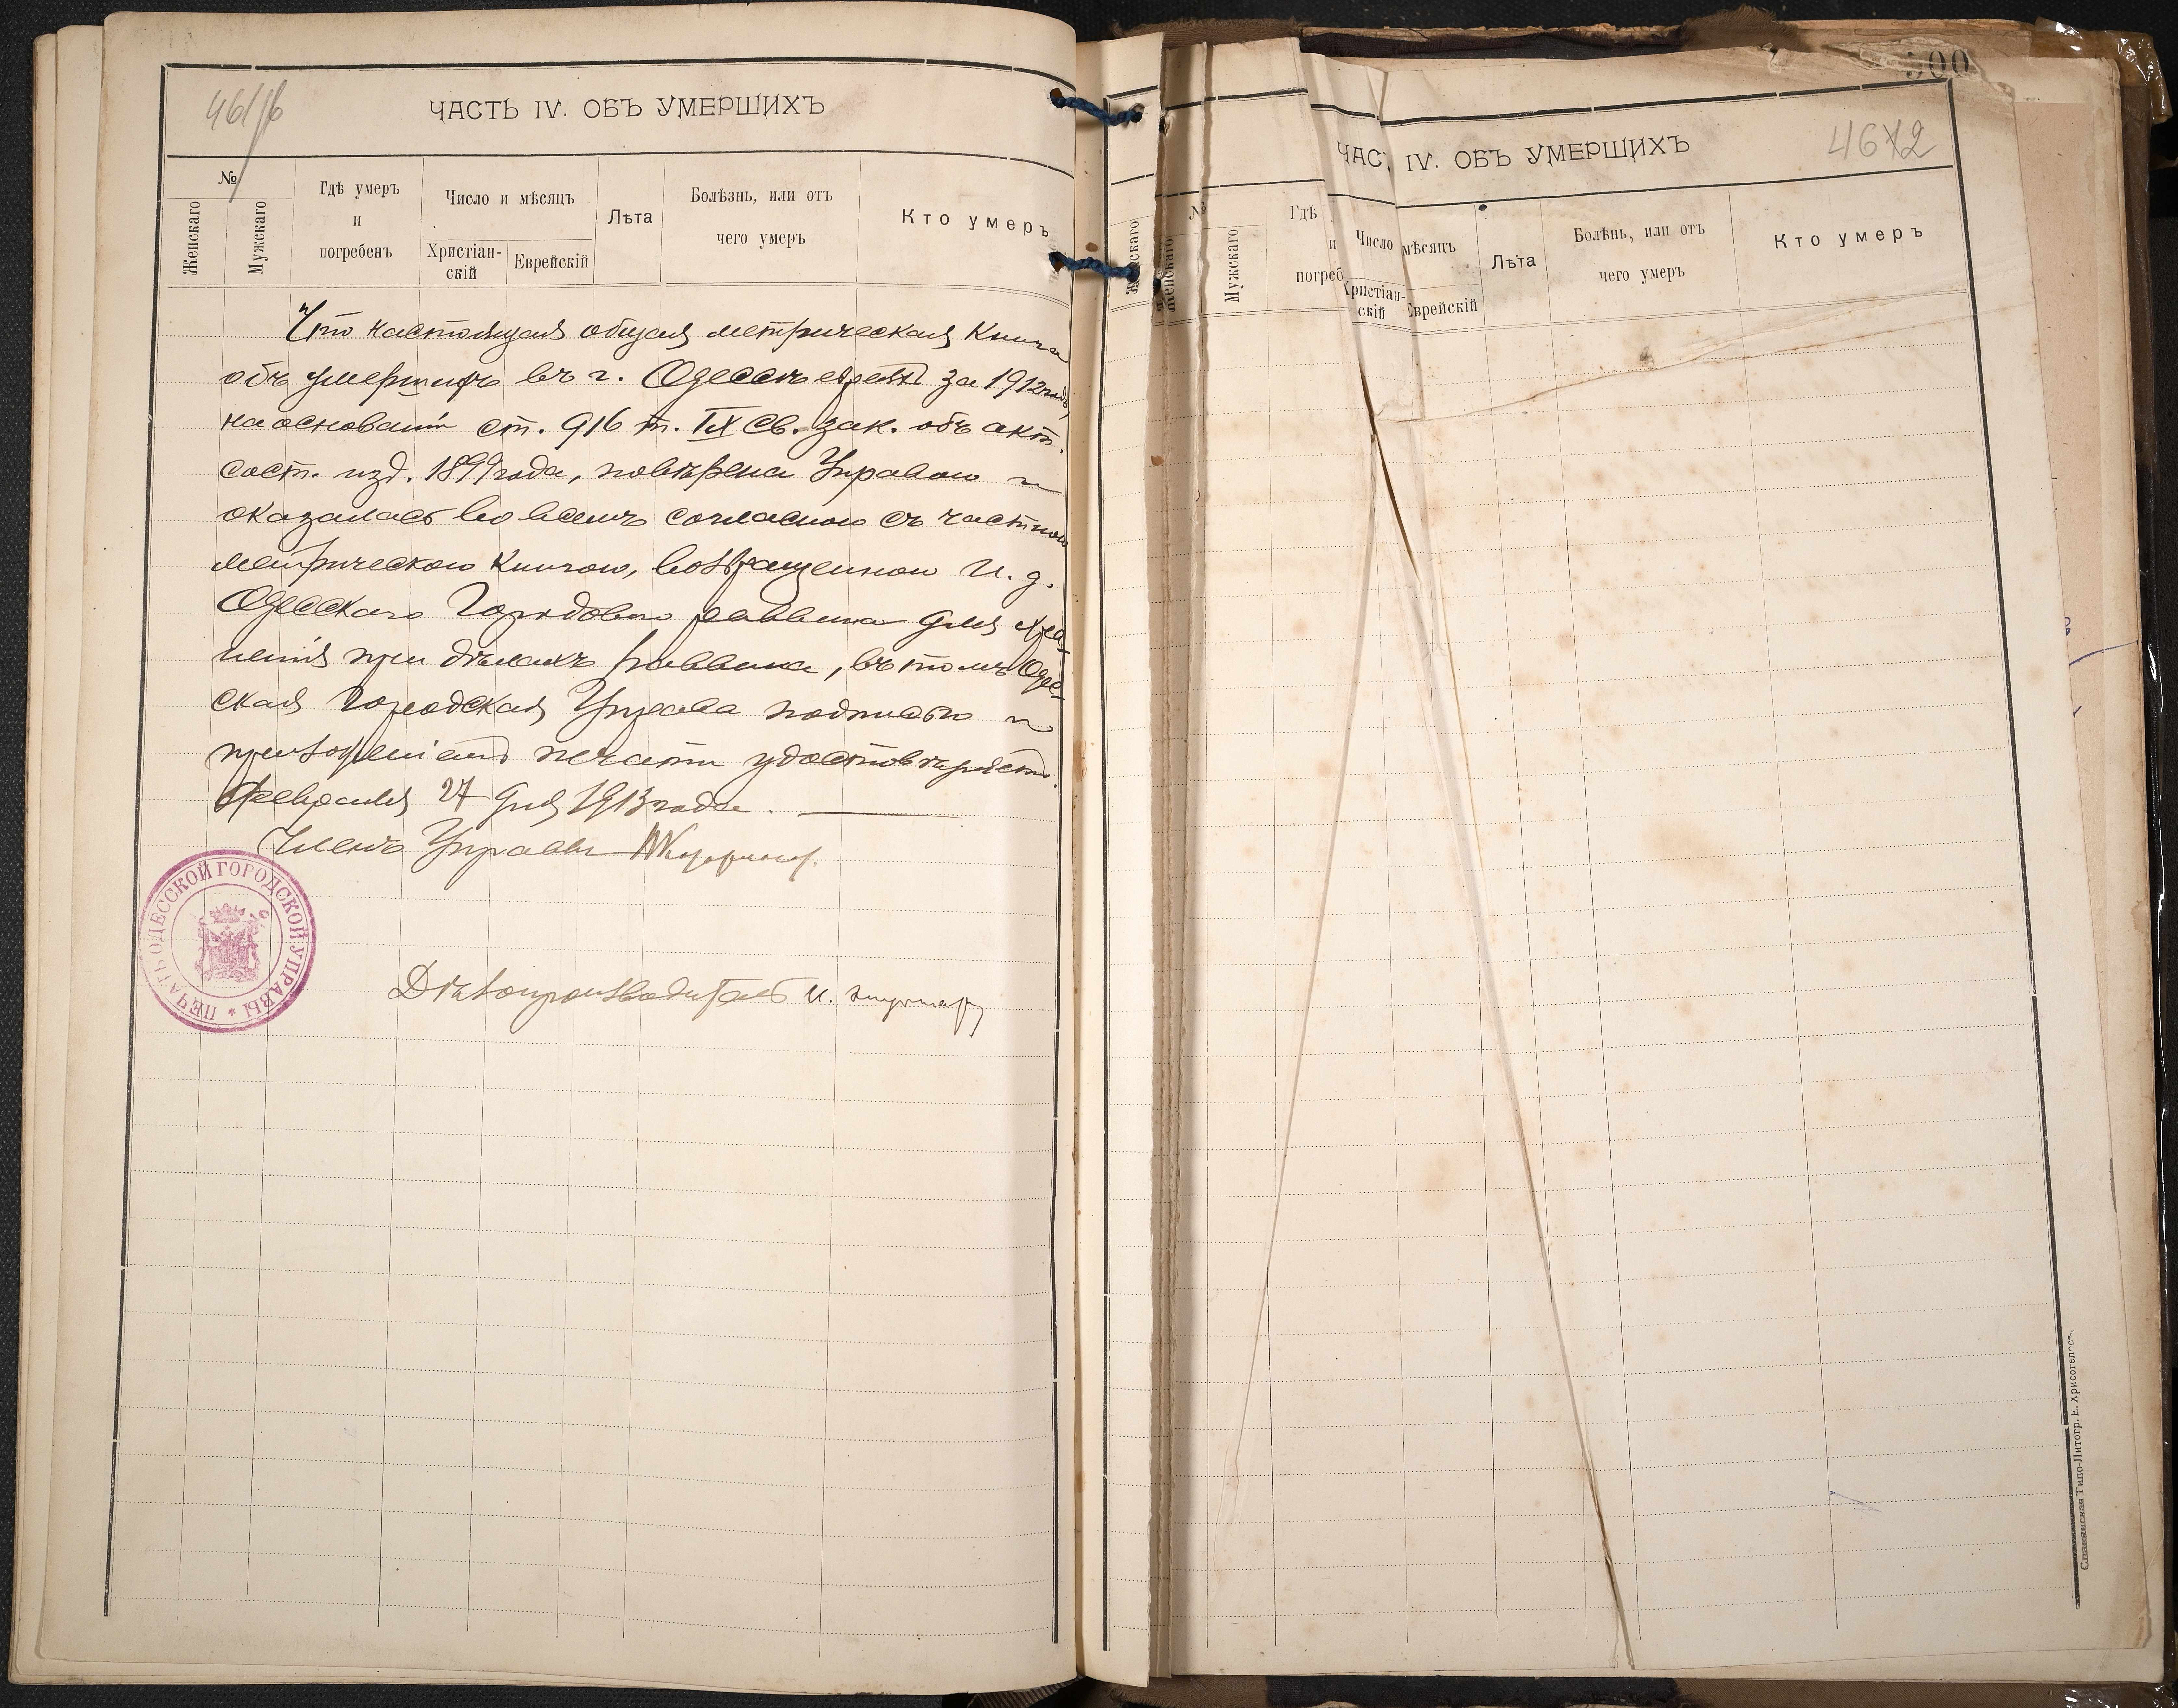 ЧАСТЬ IV. ОБЪ УМЕРШИХЪ
№
Женскаго
Мужскаго
Гдѣ умеръ
и
погребенъ
Число и мѣсяцъ
Христіан-
скій
Еврейскій
Лѣта
Болѣзнь, или отъ
чего умеръ
Кто умеръ
Что настоящая общая метрическая книга
объ умершихъ въ г. Одессѣ евреяхъ за 1912 годъ,
на основаніи ст. 916 т. IX Св. зак. объ акт.
сост. изд. 1899 года, повѣрена Управою и
оказалась во всемъ согласною съ частною
метрическою книгою, возвращенною И. д.
Одесскаго Городового раввина для хра-
ненія при дѣлахъ раввина, въ томъ Одес-
ская Городская Управа подписью и
приложеніемъ печати удостовѣряетъ.
Февраля 27 дня 1913 года.
Членъ Управы
ПЕЧАТЬ ОДЕССКОЙ ГОРОДСКОЙ УПРАВЫ *
Дѣлопроизводитель И.
500
ЧАС IV. ОБЪ УМЕРШИХЪ
4672
Женскаго
№
Женскаго
Мужскаго
Гдѣ
и
погреб
Число мѣсяцъ
Христіан-
скій
Еврейскій
Лѣта
Болѣнь, или отъ
чего умеръ
Кто умеръ
Славянская Типо-Литогр. Н. Хрисогелосъ.